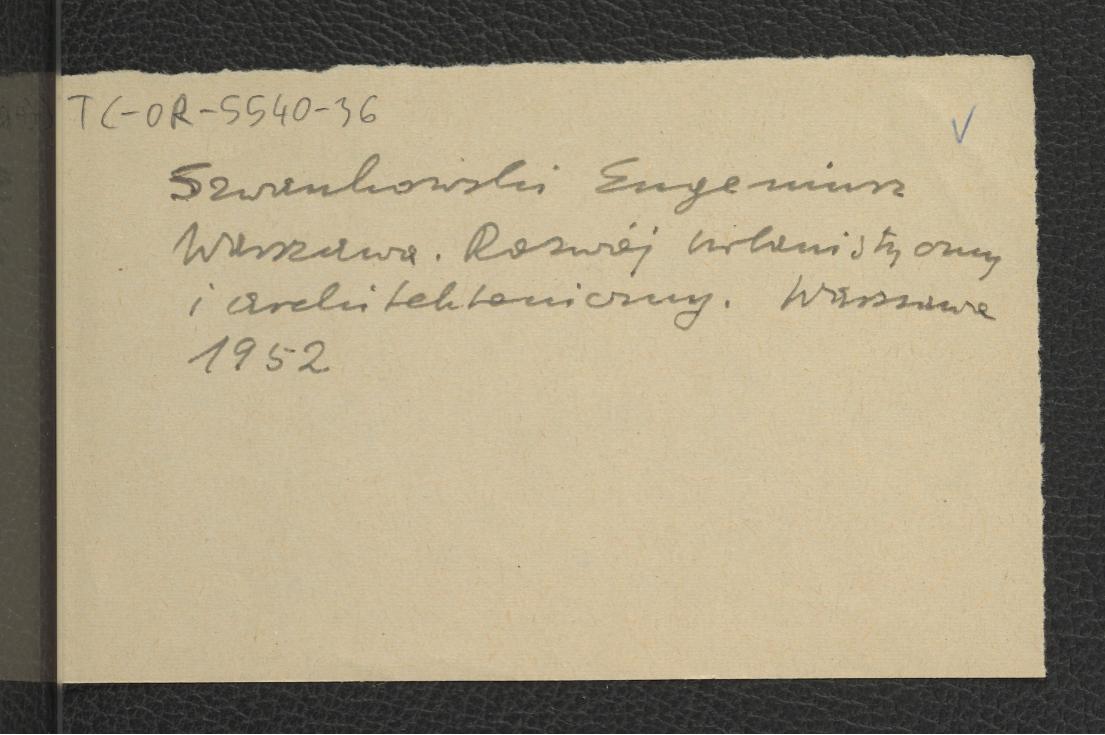 TC-OR-5540-36
Szwankowski Eugeniusz
Warszawa. Rozwój urbanistyczny
i architektoniczny. Warszawa
1952